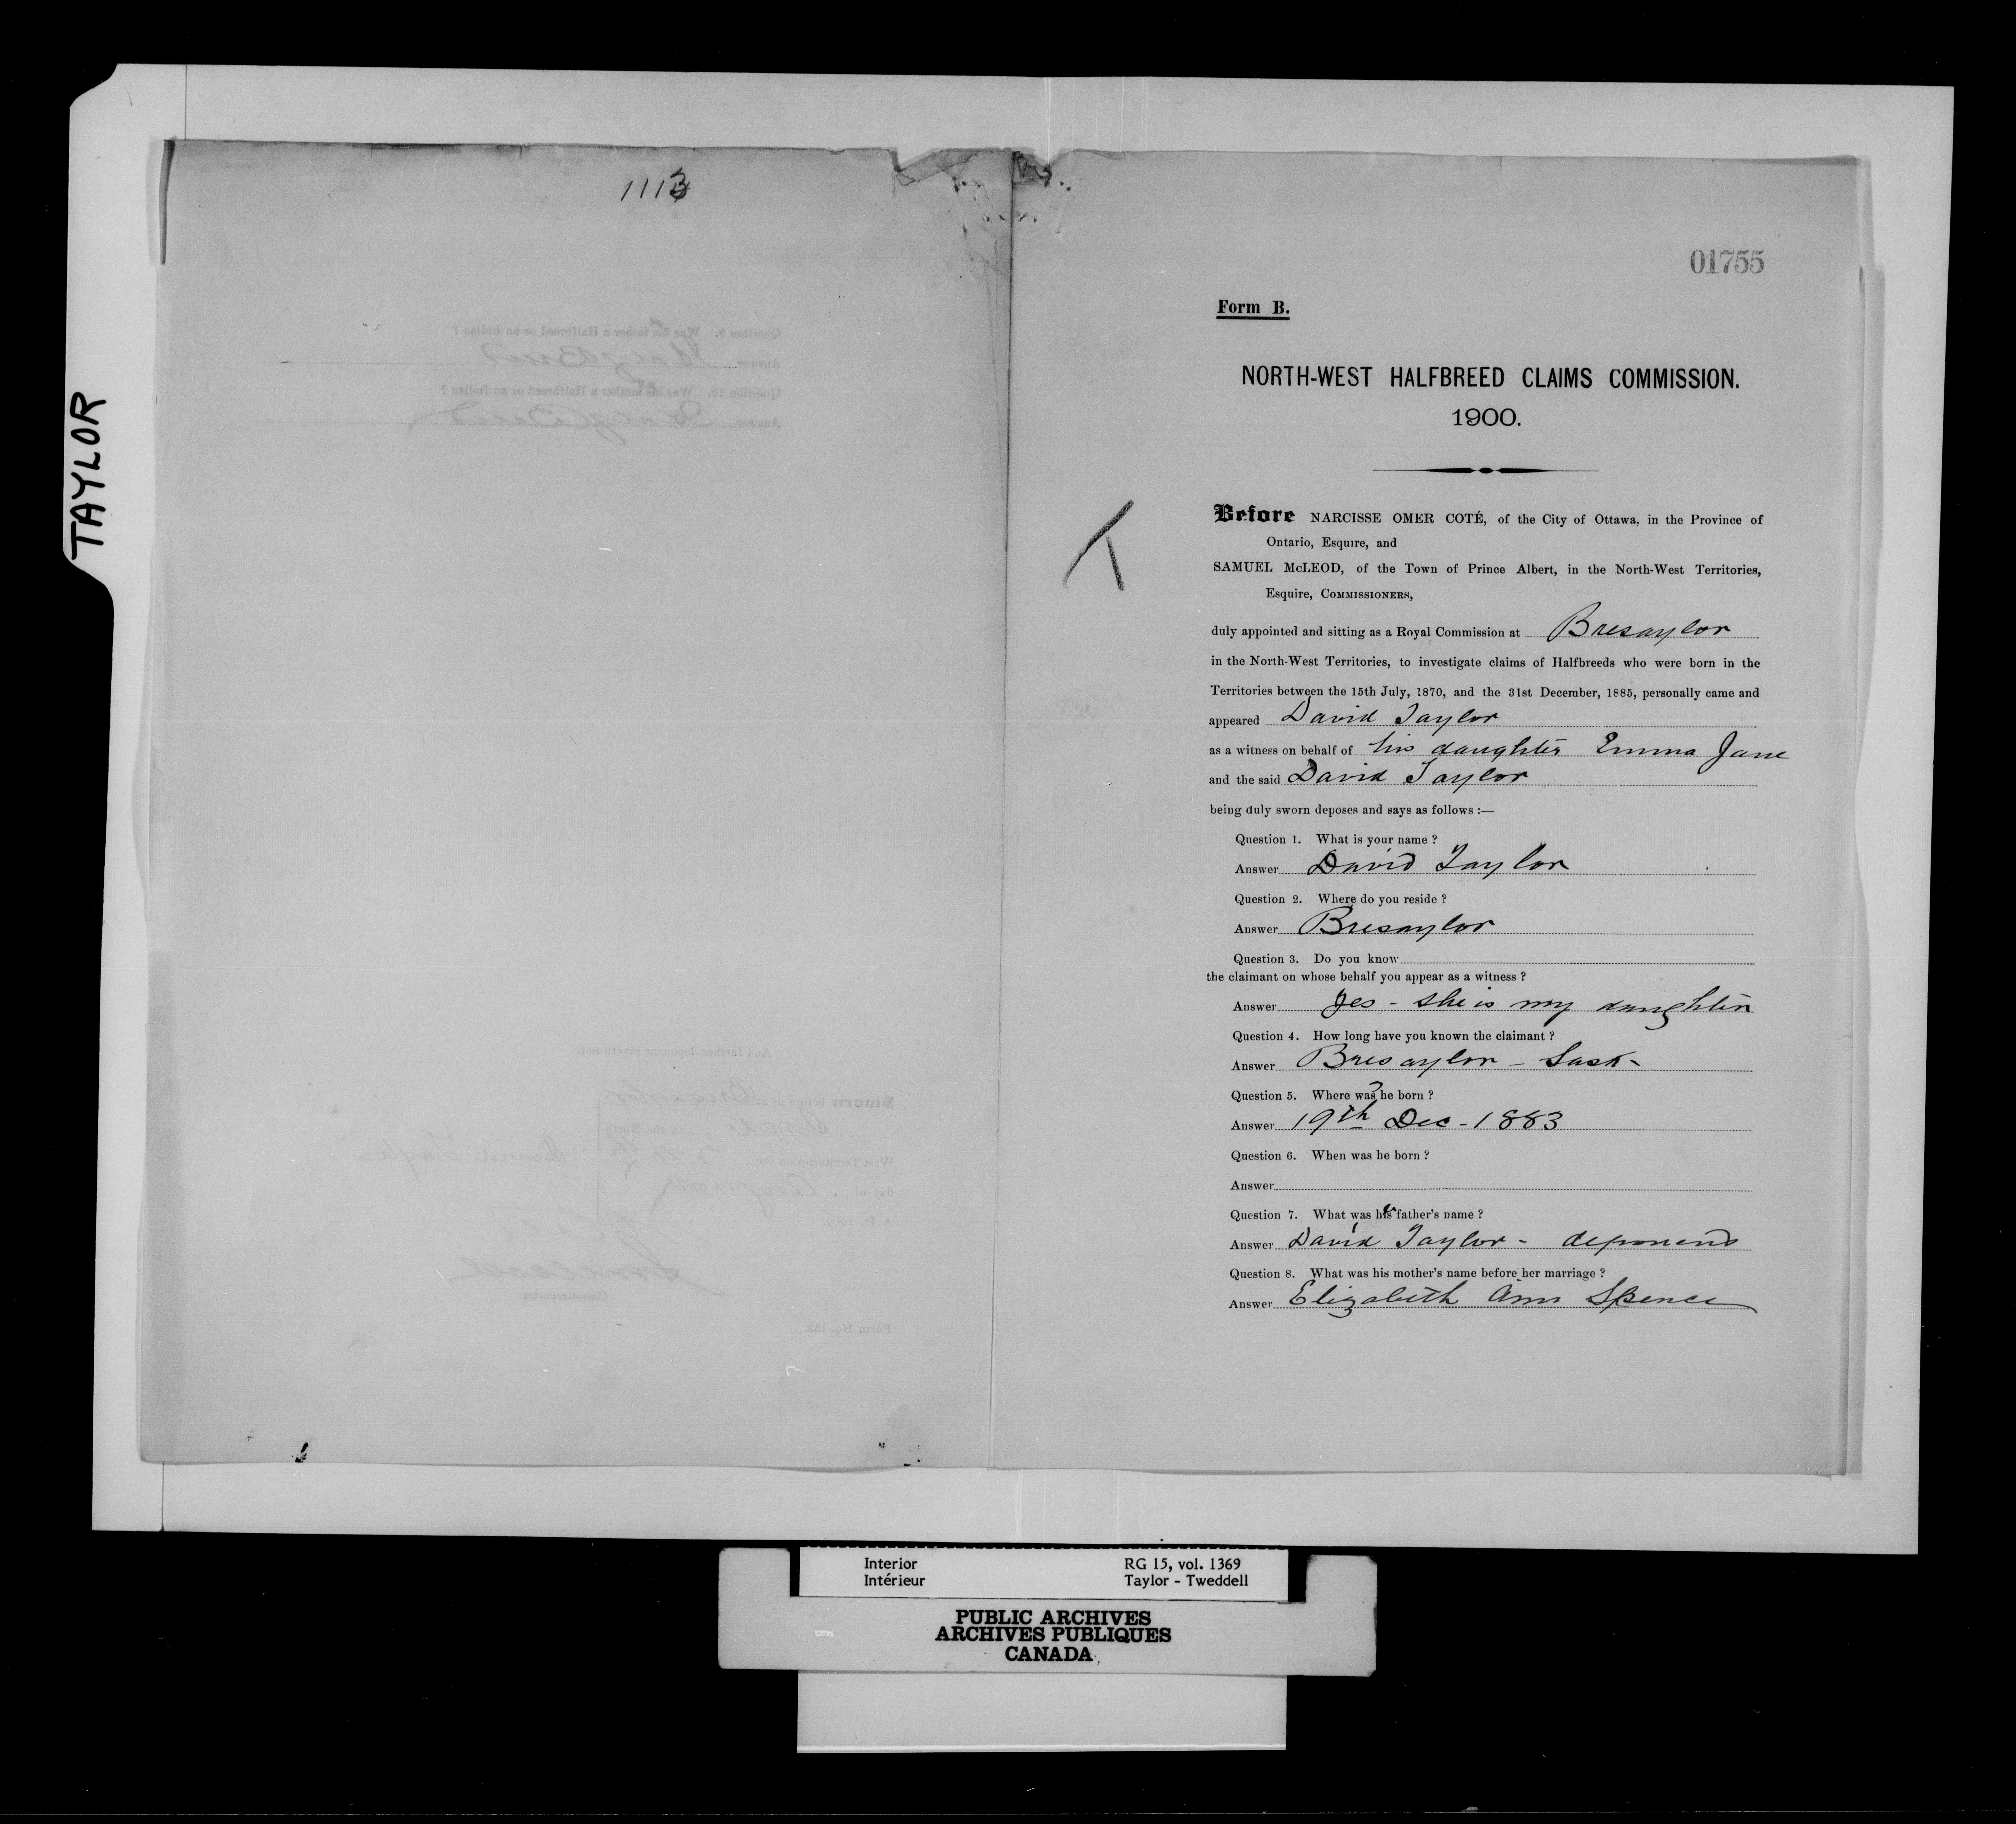 TAYLOR
1113
01755
Form B.
NORTH-WEST HALFBREED CLAIMS COMMISSION.
1900.
Before NARCISSE OMER COTÉ, of the City of Ottawa, in the Province of
Ontario, Esquire, and
SAMUEL McLEOD, of the Town of Prince Albert, in the North-West Territories,
Esquire, COMMISSIONERS,
duly appointed and sitting as a Royal Commission at Bresaylor
in the North-West Territories, to investigate claims of Halfbreeds who were born in the
Territories between the 15th July, 1870, and the 31st December, 1885, personally came and
appeared David Taylor
as a witness on behalf of his daughter Emma Jane
and the said David Taylor
being duly sworn deposes and says as follows :—
Question 1. What is your name ?
Answer David Taylor
Question 2. Where do you reside ?
Answer Bresaylor
Question 3. Do you know
the claimant on whose behalf you appear as a witness ?
Answer Yes - she is my daughter
Question 4. How long have you known the claimant ?
Answer Bresaylor - Sask -
Question 5. Where was he born ?
Answer 19th Dec - 1883
Question 6. When was he born ?
Answer
Question 7. What was her father's name ?
Answer David Taylor - deponent
Question 8. What was his mother's name before her marriage ?
Answer Elizabeth Ann Spence
Interior RG 15, vol. 1369
Intérieur Taylor - Tweddell
PUBLIC ARCHIVES
ARCHIVES PUBLIQUES
CANADA